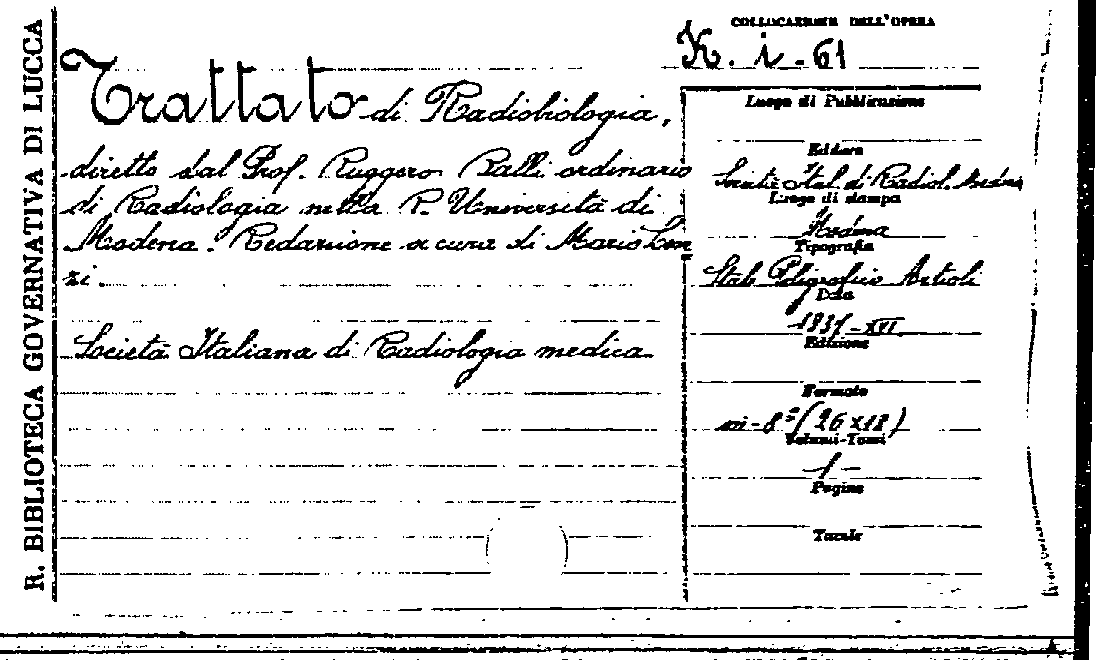 R. BIBLIOTECA GOVERNATIVA DI LUCCA
COLLOCAZIONE DELL'OPERA
K. i - 61
Trattato di Radiobiologia,
diretto dal Prof. Ruggero Balli ordinario
di Radiologia nella R. Università di
Modena. Redazione a cura di Mario
zi.
Società Italiana di Radiologia medica
Luogo di Pubblicazione
Editore
Società Ital. di Radiol. Medica
Luogo di stampa
Modena
Tipografia
Stab. Poligrafico Artioli
Data
1937-XVI
Edizione
Formato
in-8º (26x18)
Volumi-Tomi
1-
Pagine
Tavole